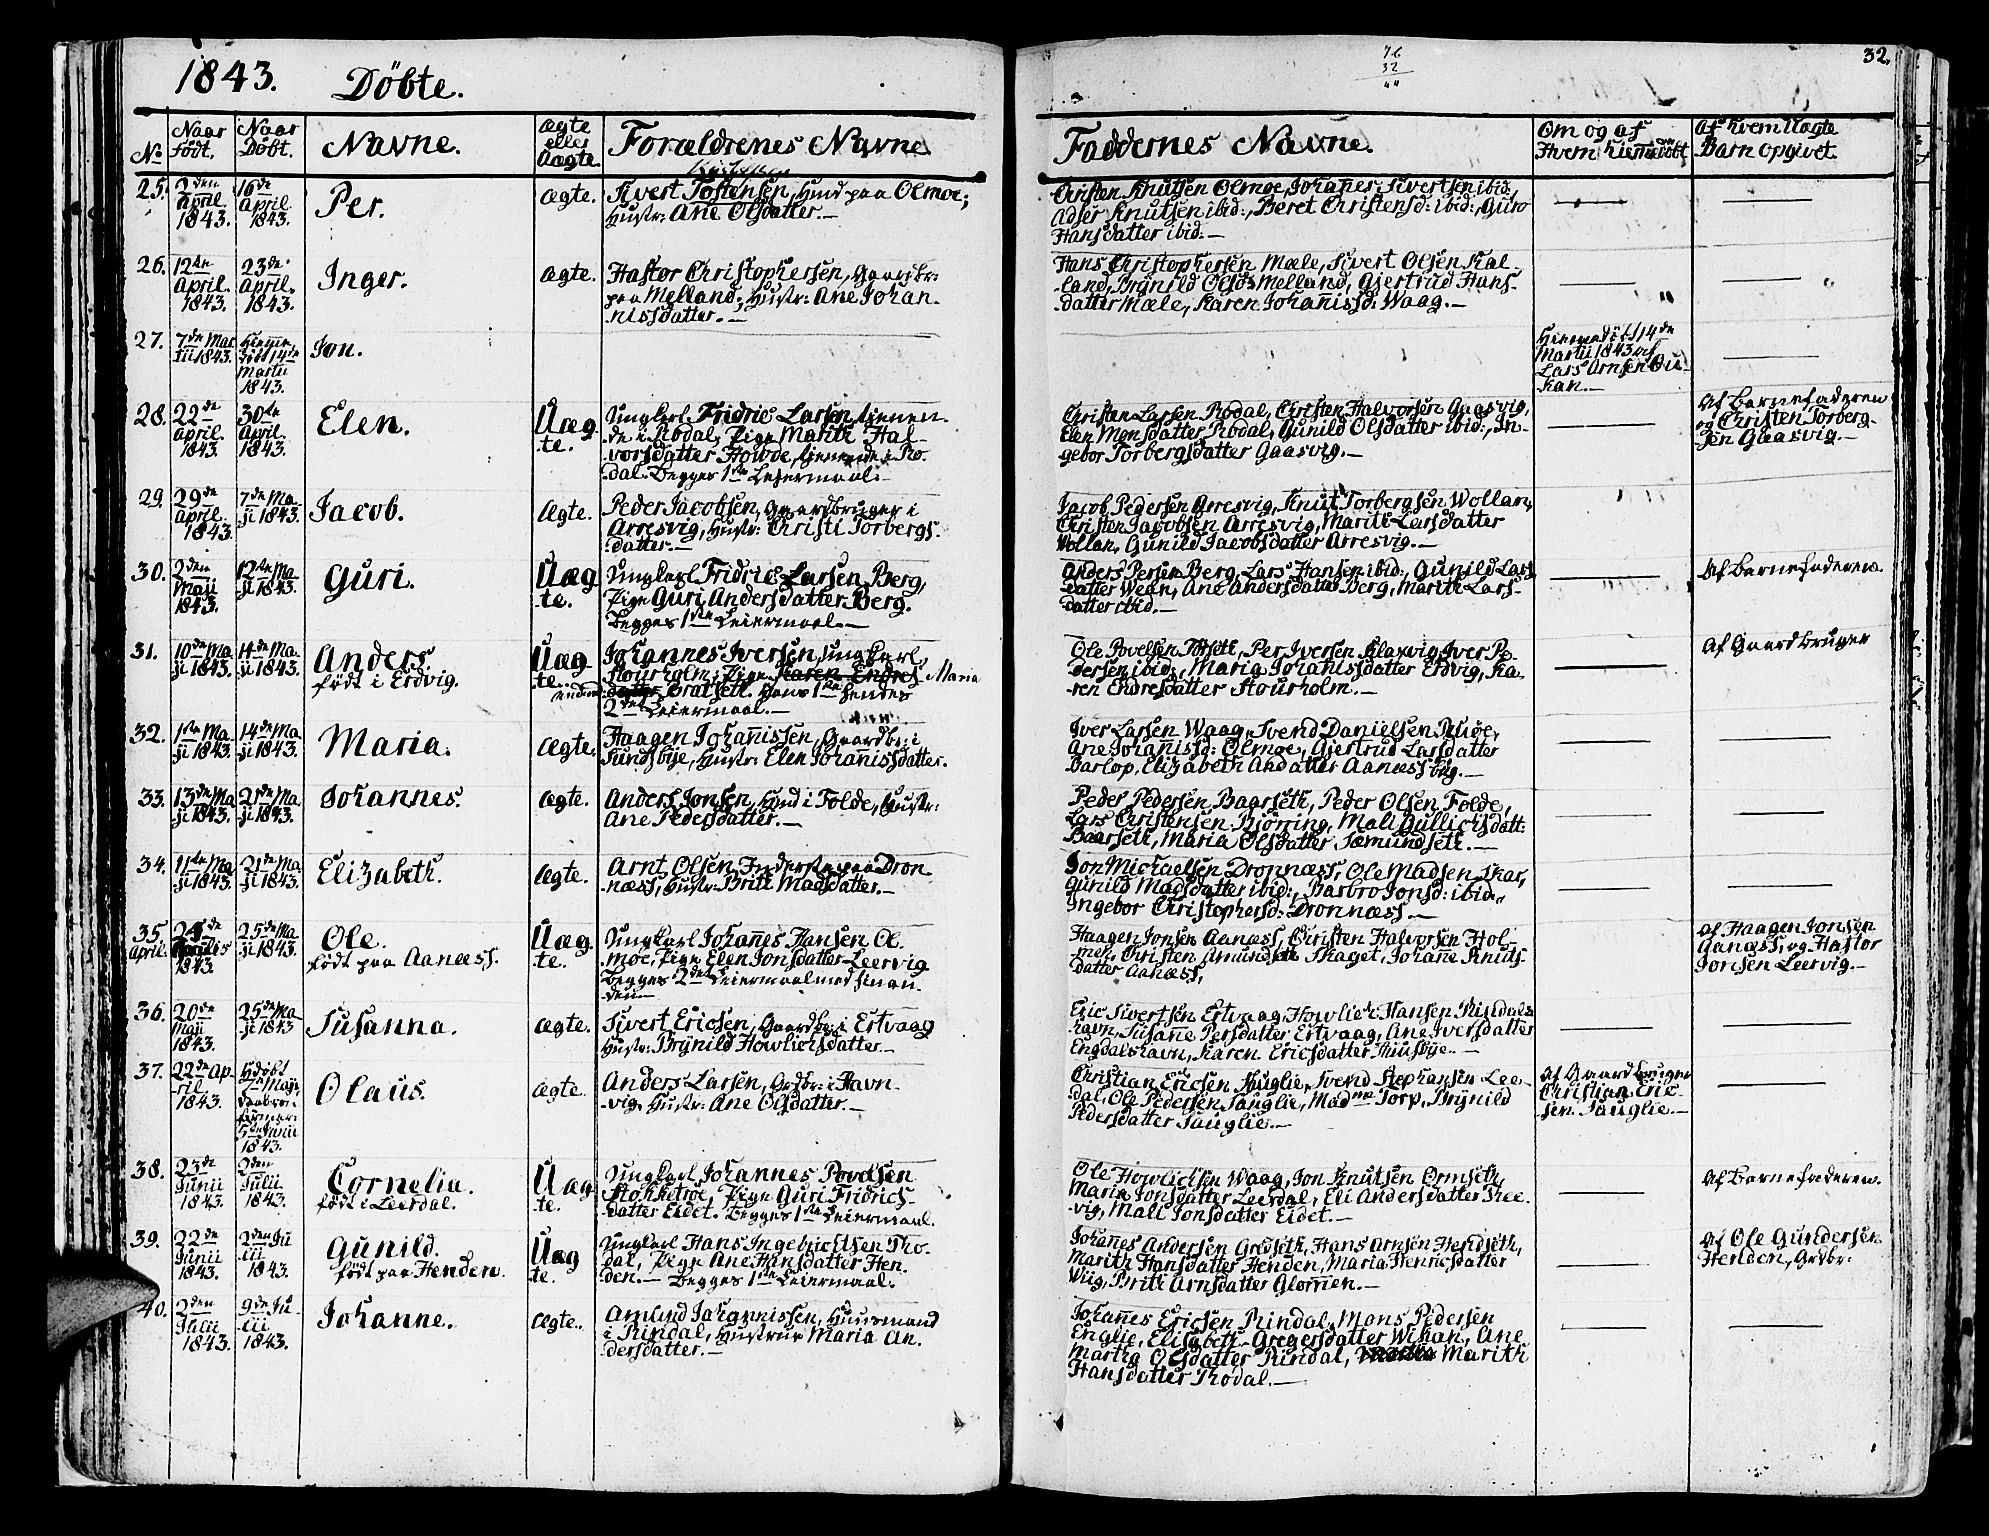 1843. Döbte.
76
32
44
32.
No
Naar født.
Naar Döbt.
Navne.
ægte eller Uægte.
Forældrenes Navne.
Faddernes Navne.
Om og af Hvem hiemedöbt
Af hvem Uægte Barn opgivet.
25.
2den April 1843.
16de April 1843.
Per.
ægte.
Sivert Tostensen, Huusm. paa Olmoe;
Hustr: Ane Olsdatter.—
Christen Knutsen Olmoe, Johanes Sivertsen ibid:,
Adser Knutsen ibid:, Beret Christensd: ibid:, Guro
Hansdatter ibid:—
26.
12te April. 1843.
23de April. 1843.
Inger.
ægte.
Hastor Christophersen, Gaardbr:
paa Melland; Hustr: Ane Johan-
nissdatter.—
Hans Christophersen Mæle, Sivert Olsen Kal-
land, Brynild Olsd: Melland, Gjertrud Hans-
datter Mæle, Karen Johanissd: Waag.—
27.
7de Mar-
tii 1843.
Hiemme-
döbt 14de
Martii
1843.
Jon.
Hiemmedöbt 14de
Martii 1843 af
Lars Arnsen
28.
22de April. 1843.
30te April. 1843.
Elen.
Uæg-
te.
Ungkarl Fridric Larsen, tienen-
de i Rodal, Pige Marith Hal-
vorsdatter Howde, tienende i Ro-
dal. Begges 1ste Leiermaal:
Christen Larsen Rodal, Christen Halvorsen Gaasvig,
Elen Monsdatter Rodal, Gunild Olsdatter ibid:, In-
gebor Torbergsdatter Gaasvig.—
Af Barnefaderen
og Christen Torberg-
sen Gaasvig.—
29.
29de April. 1843.
7de Ma-
ji 1843.
Jacob.
Ægte.
Peder Jacobsen, Gaardbruger i
Arresvig, Hustr: Christi Torbergs-
datter.—
Jacob Pedersen Arresvig, Knut Torbergsen Wollan,
Christen Jacobsen Arresvig, Marith Larsdatter
Wollan, Gunild Jacobsdatter Arresvig.—
30.
2den Maji 1843.
12te Ma-
ji 1843.
Guri.
Uæg-
te.
Ungkarl Fridric Larsen Berg,
Pige Guri Andersdatter Berg.
Begges 1ste Leiermaal.—
Anders Persen Berg, Lars Hansen ibid:, Gunild Lars-
datter Wean, Ane Andersdatter Berg, Marith Lars-
datter ibid.—
Af Barnefaderen.
31.
10de Ma-
ji 1843.
14de Ma-
ji 1843.
Anders.
født i Erdvig.
Uæg-
te.
Johannes Iversen, ungkarl,
Stourholm, Pige Karen Endres- Maria
datter Bratsett. Hans 1ste Hendes
2det Leiermaal.—
Ole Povelsen Torsett, Per Iversen Klaxvig, Iver Pe-
dersen ibid:, Maria Johanisdatter Erdvig, Ka-
ren Endresdatter Stourholm.—
Af Gaardbruger
32.
1ste Ma-
ji 1843.
14de Ma-
ji 1843.
Maria.
ægte.
Haagen Johanissen, Gaardbr: i
Sundsbye, Hustr: Elen Johanissdatter.
Iver Larsen Waag, Svend Danielsen Ruøe,
Ane Johanissd: Olmoe, Gjertrud Larsdatter
Barlop, Elizabeth Andatter Aanæssbug.—
33.
13de Ma-
ji 1843.
21de Ma-
ji 1843.
Johannes.
ægte.
Anders Jonsen, Husmd i Folde, Hustr:
Ane Pedersdatter.—
Peder Pedersen Baarseth, Peder Olsen Folde,
Lars Christensen Biörring, Mali Gullichsdatt:
Baarseth, Maria Olsdatter Sæmundseth.—
34.
11te Ma-
ji 1843.
21de Ma-
ji 1843.
Elizabeth.
ægte.
Arnt Olsen Inderste paa Dron-
næss, Hustr: Brit Madsdatter.—
Jon Michaelsen Dronnæss, Ole Madsen Skar,
Gunild Madsdatter ibid:, Barbro Jonsd: ibid:,
Ingebor Christophersd: Dronnæss.—
35
April.
24de Aprilis 1843.
25de Ma-
ji 1843.
Ole.
født paa Aanæss.
Uæg-
te.
Ungkarl Johannes Hansen Ol-
moe, Pige Elen Jonsdatter Leervig.
Begges 2det Leiermaal med hinan-
den—
Haagen Jonsen Aanæss, Christen Halvorsen Hol-
men, Christen Amundsen Skaget, Johane Knuts-
datter Aanæss,
af Haagen Jonsen
Aanæss, og Hastor
Jonsen Leervig.—
36.
20de Maji 1843.
25de Ma-
ji 1843
Susanna.
ægte.
Sivert Ericsen, Gaardbr: i Ertvaag
Hustr: Brynild Howlichsdatter.—
Eric Sivertsen Ertvaag, Howlich Hansen Rindals-
havn, Susane Persdatter Ertvaag, Ane Iversdatter
Engdalshavn, Karen Ericsdatter Huusbye.—
37.
22de Ap-
ril 1843.
Hdöbt
7de Maji,
Daabens
5te Junii
1843.
Olaus.
ægte.
Anders Larsen, Grdbr: i Havn-
vig, Hustr: Ane Olsdatter.—
Christian Ericsen Sauglie, Svend Stephansen Lee-
dal, Ole Pedersen Sauglie, Madme Torp, Brynild
Pedersdatter Sauglie.—
af Gaardbruger
Christian Eric-
sen Sauglie.—
38.
23de Junii 1843.
2den Julii 1843.
Cornelia.
født i Leerdal.
Uæg-
te.
Ungkarl Johannes Povelsen
Stokketroe, Pige Guri Fridrics-
datter Eidet. Begges 1ste Leiermaal.
Ole Howlichsen Waag, Jon Knutsen Ormseth,
Maria Jonsdatter Leerdal, Eli Andersdatter Skee-
vig, Mali Jonsdatter Eidet.—
Af Barnefaderen.
39.
22de Junii 1843.
2den Ju-
lii 1843.
Gunild.
født paa Henden.
Uæg
te.
Ungkarl Hans Ingebrichtsen Rho-
dal, Pige Ane Hansdatter Hen-
den.— Begges 1ste Leiermaal.
Johanes Andersen Gredseth, Hans Arnsen Hendseth,
Marith Hansdatter Henden, Maria Henricsdatter
Wiig, Brith Arnsdatter Glommen.—
af Ole Gundersen
Henden, Grdbr:
40.
2den Julii 1843.
9de Ju-
lii 1843.
Johanne.
ægte.
Amund Johannissen, Huusmand
i Rindal, Hustrue Maria An-
dersdatter.—
Johanes Ericsen Rindal, Mons Pedersen
Englie, Elisabeth Gregersdatter Wikan, Ane
Martha Olsdatter Rindal, Marith
Hansdatter Rodal.—